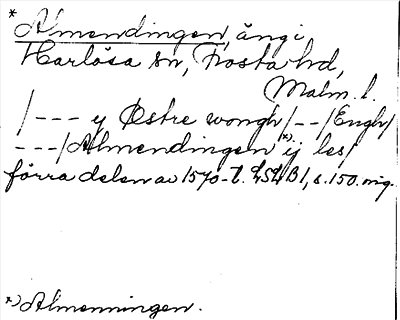 * Almendingen, äng i
Harlösa sn, Frosta hd,
Malm. l.
/--- y Østre wongh/--/Engh/
---/Almendingen *) ij les/
förra delen av 1570-t. LSLB1, s. 150. mg.
*) Almenningen.